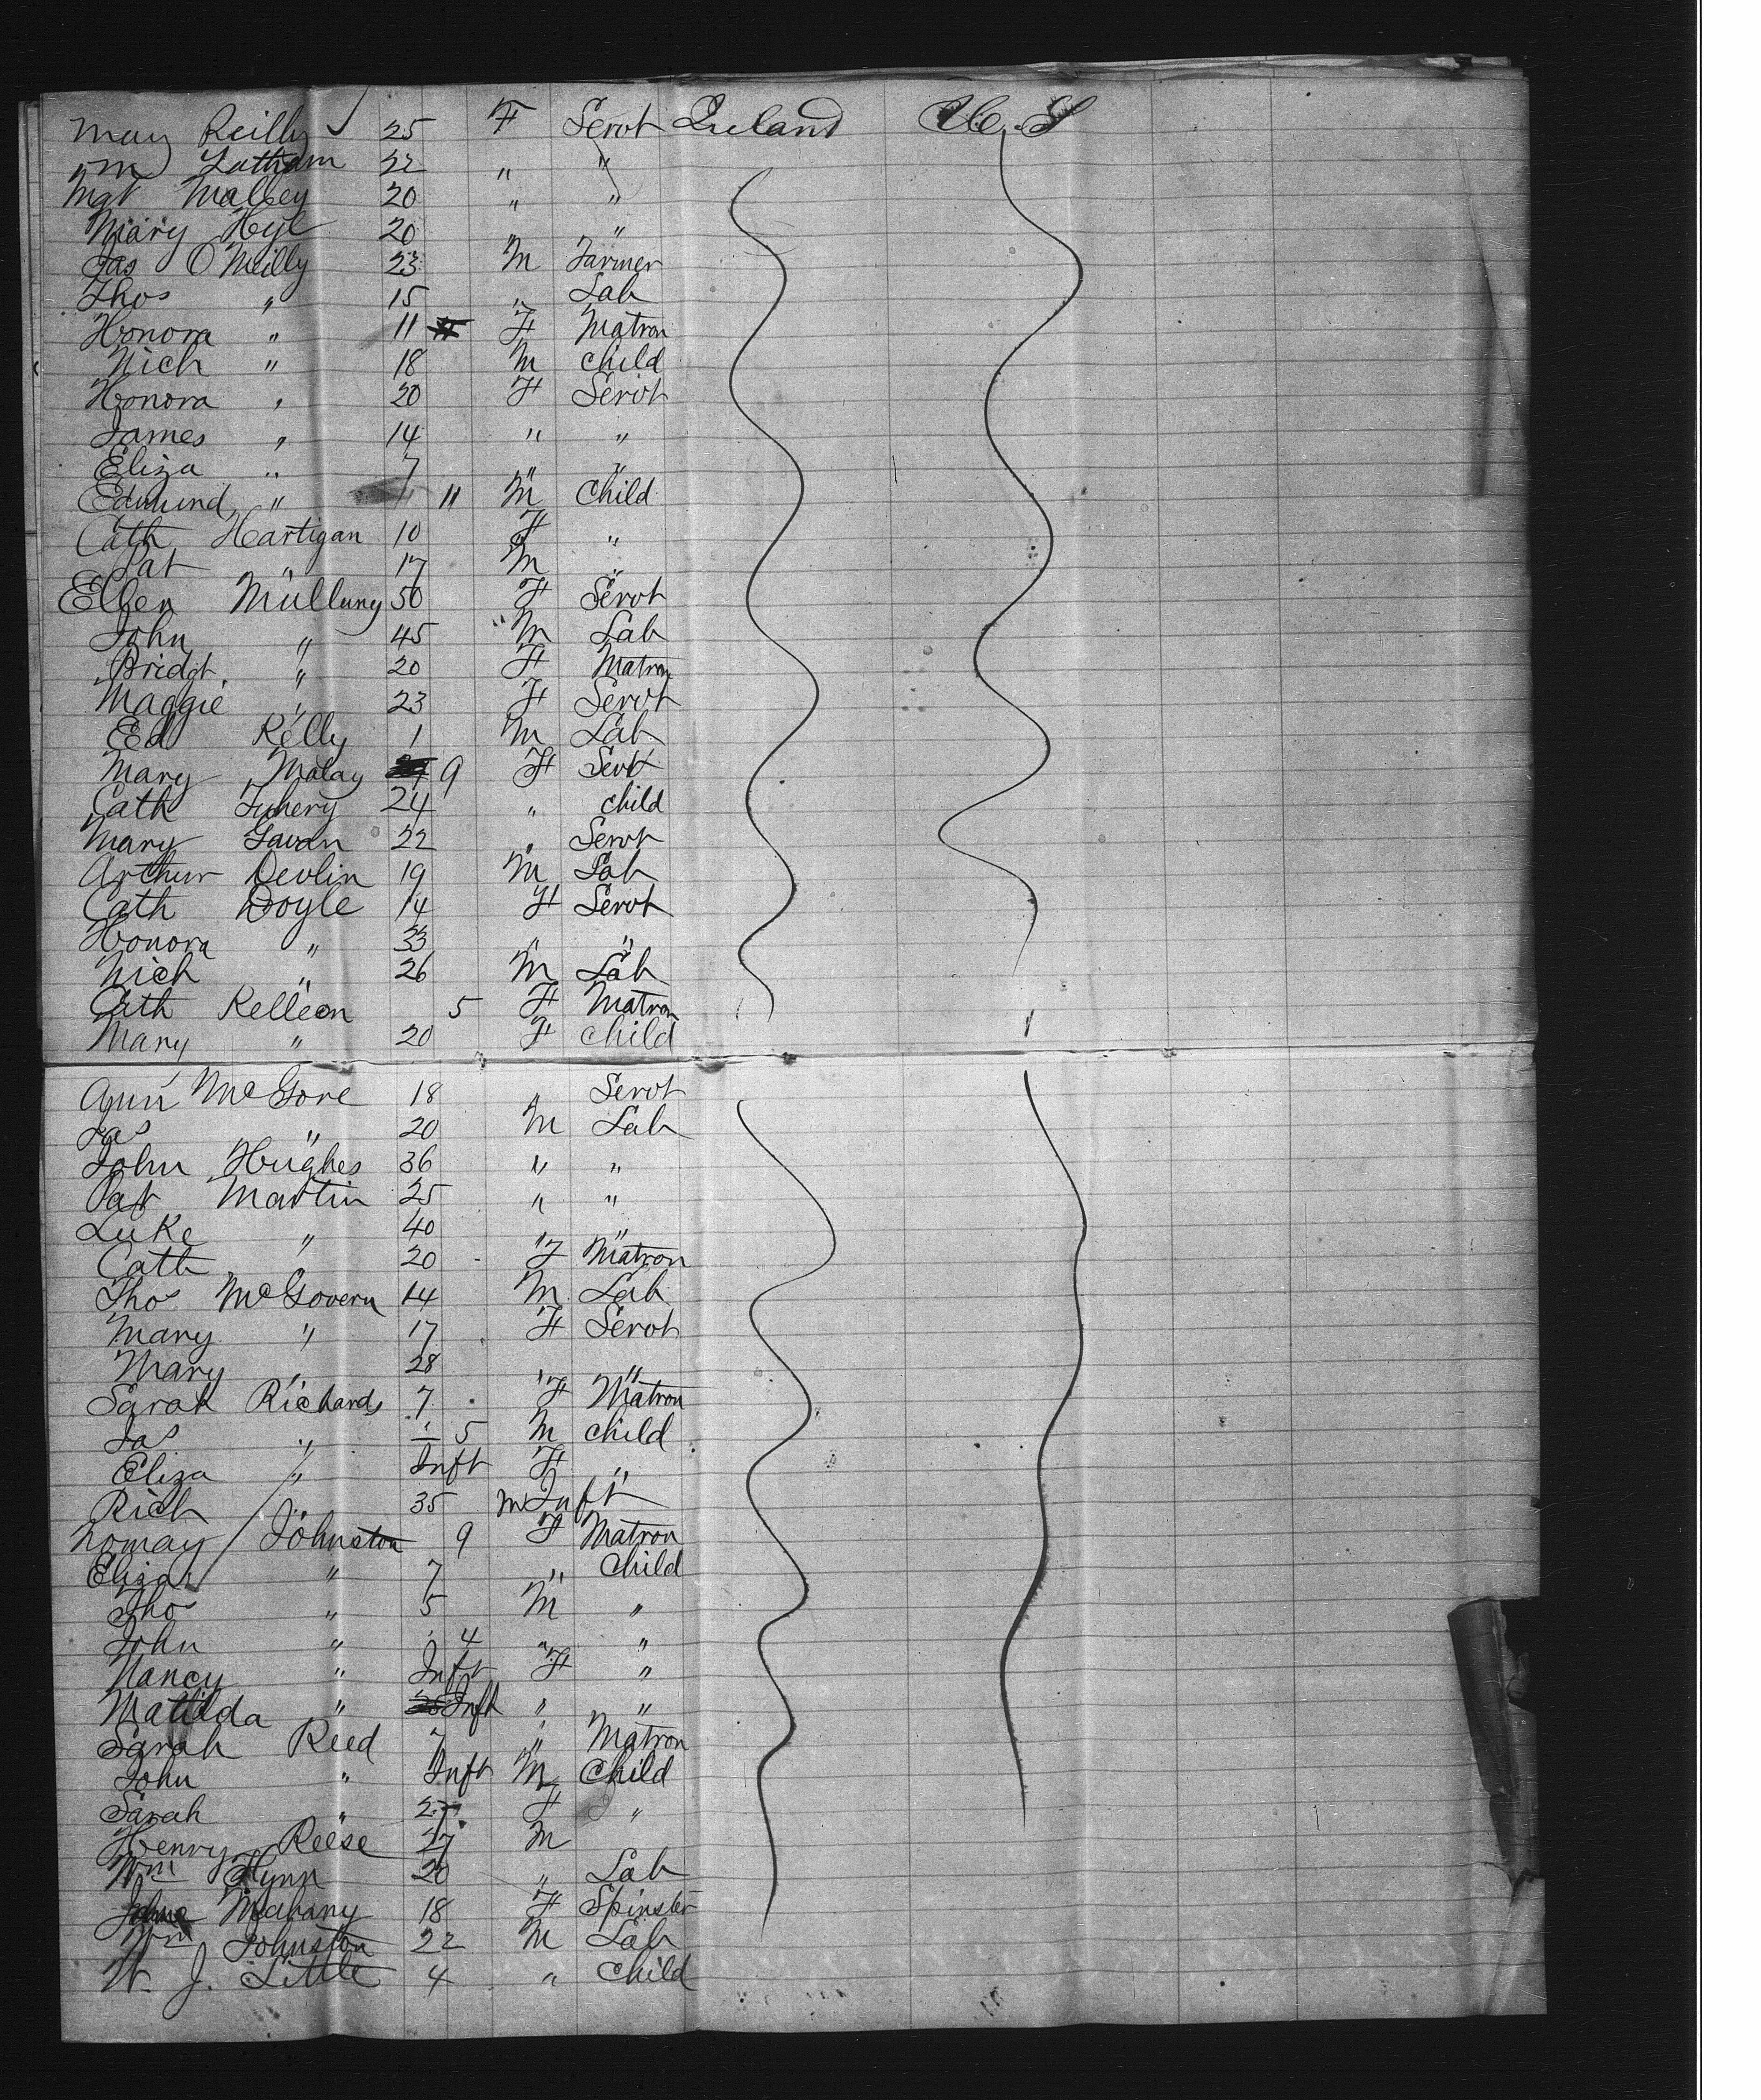 May Reilly 25 F Servt Ireland U. S
Latham 22 " "
Mgt Malley 20 " "
Mary Hyl 20 " "
Jas O'Meilly 23 M Farmer
Thos " 15 " Lab
Honora " 11 F Matron
Nich " 18 M child
Honora " 20 F Servt
James " 14 " "
Eliza " 7 " "
Edmund " 11 M Child
Cath Hartigan 10 F "
Pat " 17 M "
Ellen Mulluny 50 F Servt
John " 45 M Lab
Bridgt " 20 F Matron
Maggie " 23 F Servt
Ed Kelly 1 M Lab
Mary Malay 9 F Servt
Cath 24 " child
Mary Gavan 22 " Servt
Arthur Devlin 19 M Lab
Cath Doyle 14 F Servt
Honora " 33 " "
Nich " 26 M Lab
Cath Kelleon 5 F Matron
Mary " 20 F Child
Ann McGore 18 " Servt
Jas " 20 M Lab
John Hughes 36 " "
Pat Martin 25 " "
Luke " 40 " "
Cath 20 F Matron
Thos McGovern 14 M Lab
Mary " 17 F Servt
Mary " 28 " "
Sarah Richards 7 F Matron
Jas " 5 M child
Eliza " Inft F "
Rich " 35 M Inft
Johnston 9 F Matron
Eliza " 7 " Child
Tho " 5 M "
John " 4 " "
Nancy " Inft F "
Matilda " Inft " "
Sarah Reed 7 " Matron
John " Inft M Child
Sarah " 27 F "
Henry Reese 27 M
Wm Flynn 20 " Lab
Mahany 18 F Spinster
Wm Johnston 22 M Lab
W. J. Little 4 " Child